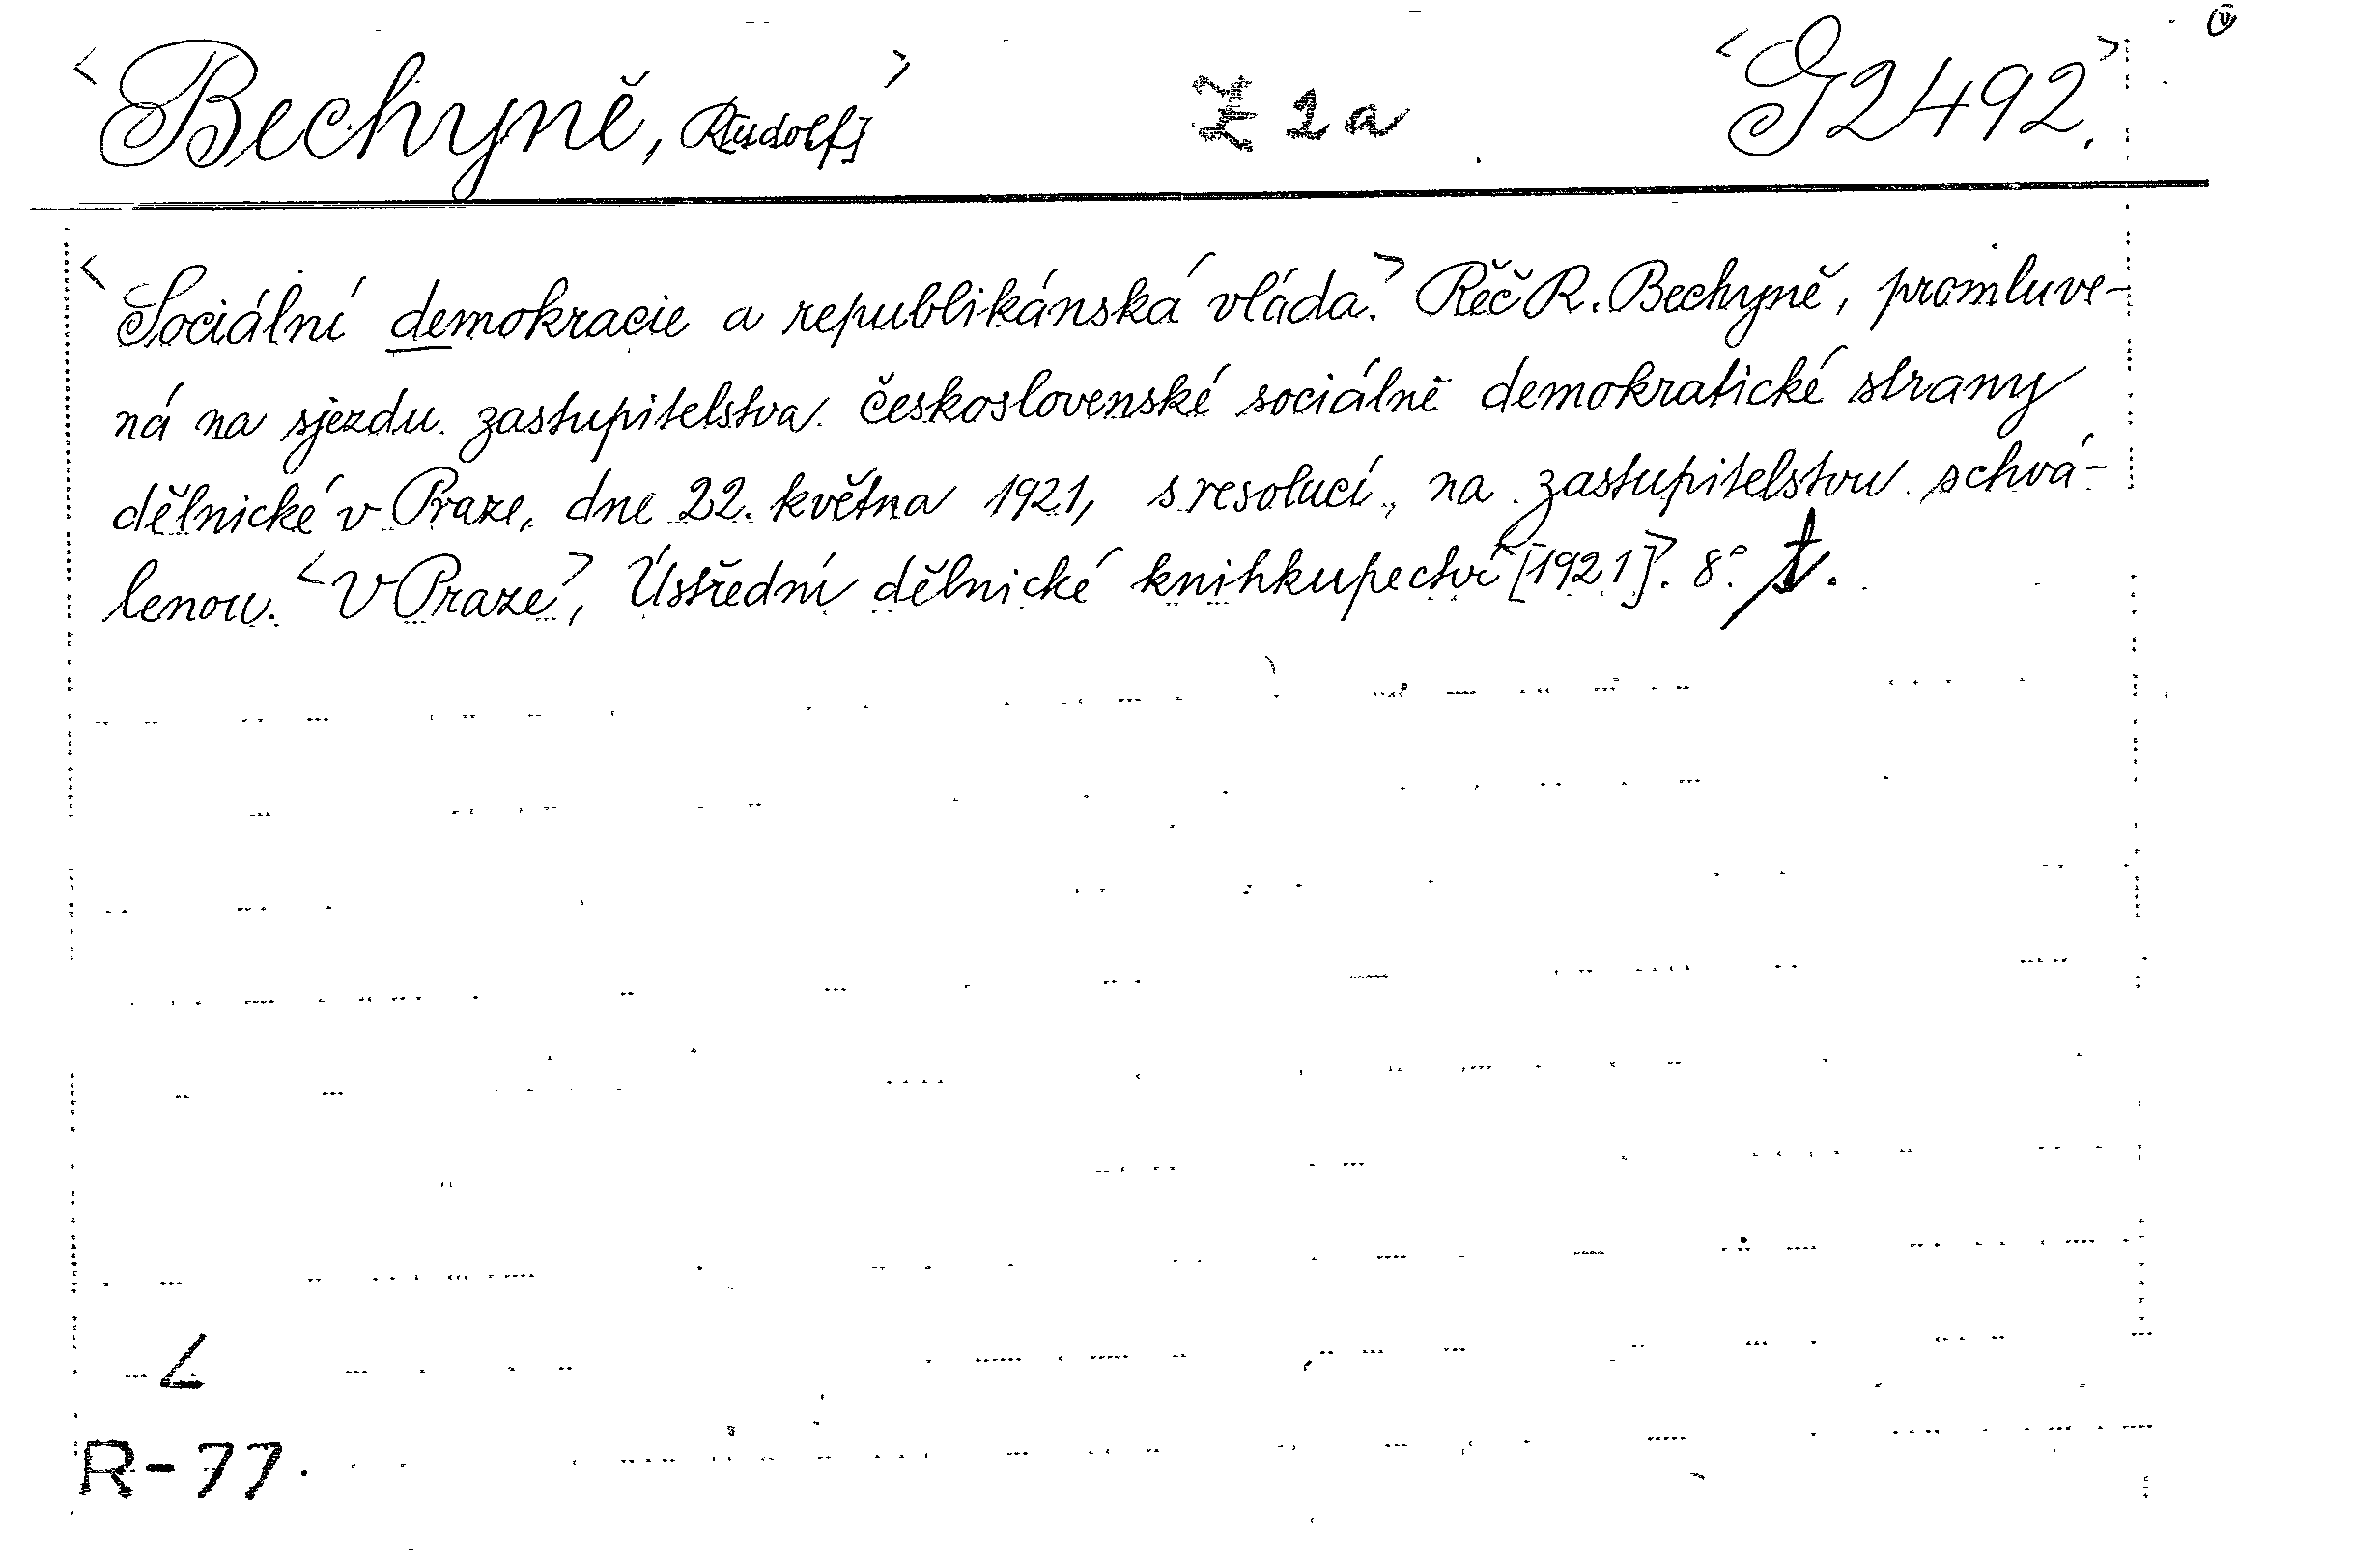 <Bechyně, R[udolf]> Z 2a <G 2492.>
<Sociální demokracie a republikánská vláda.> Řěč R. Bechyně, promluve-
ná na sjezdu zastupitelstva československé sociálně demokratické strany
dělnické v Praze, dne 22. května 1921, s resolucí, na zastupitelstvu schvá-
lenou. <V Praze>, Ústřední dělnické knihkupectví <[1921]>. 8°.
L
R-77.